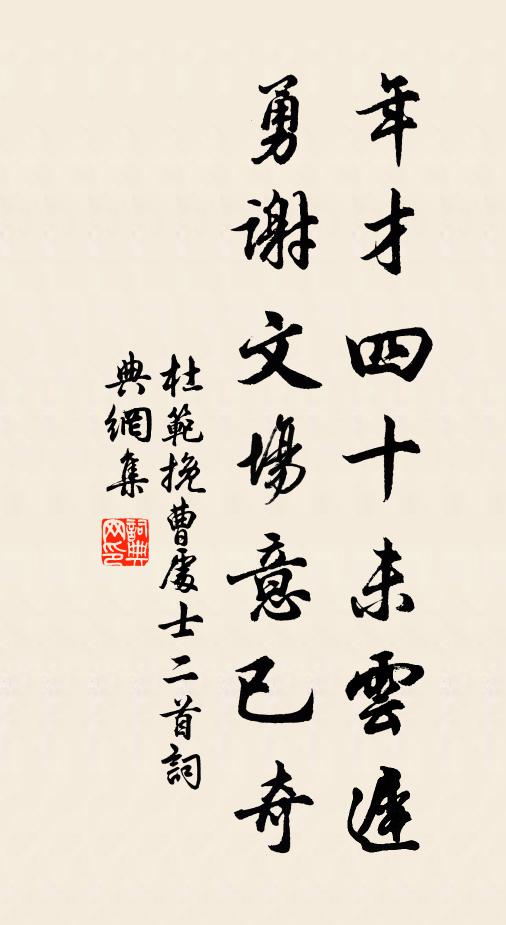 年才四十未雲遲
勇謝文場意已奇
杜範挽曹處士二首詞
典網集
詞典網印